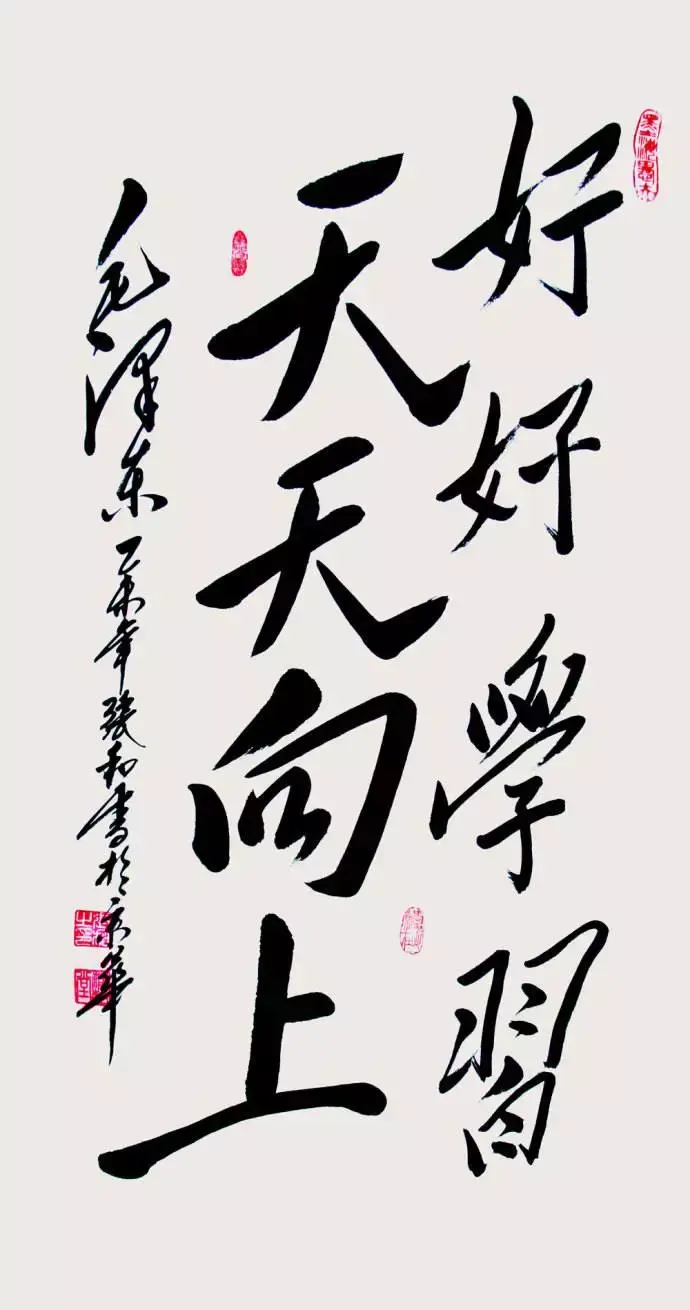 好好學習
天天向上
毛澤東 乙未年 張和書於京華